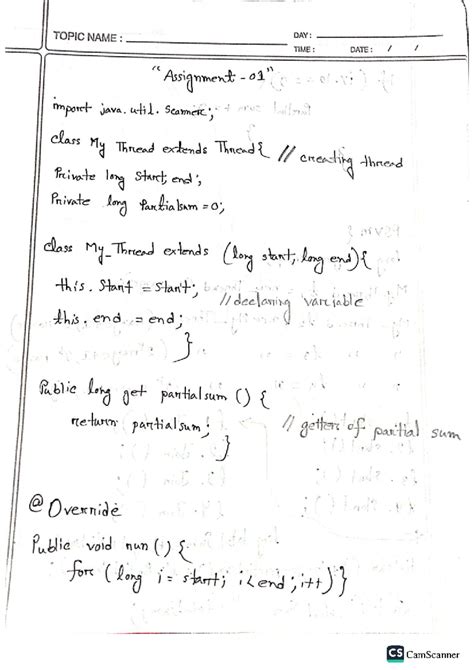 TOPIC NAME :
DAY :
TIME :
DATE : / /
"Assignment - 01"
import java.util.Scanner;
class My Thread extends Thread{ // creating thread
Private long Start, end;
Private long Partialsum = 0;
class My_Thread extends (long start, long end){
this. Start = Start;
// declaring variable
this. end = end;
}
Public long get partialsum () {
return partialsum;
// getters of partial sum
}
@Override
Public void run () {
for (long i = start; i<end; i++) }
CS CamScanner